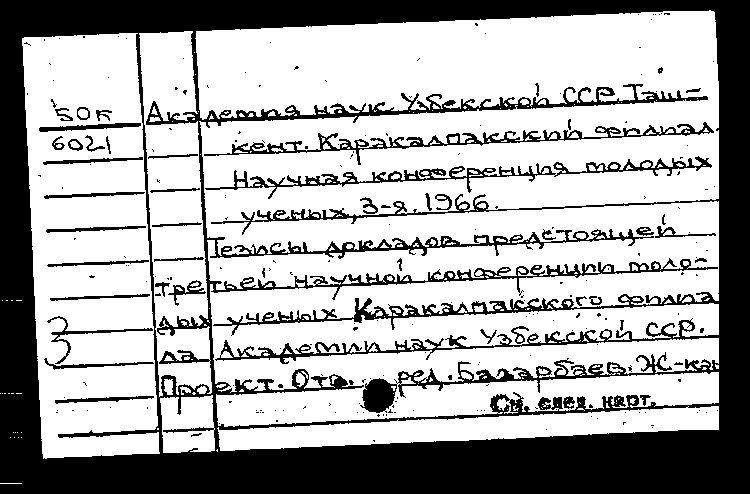 50к Академия наук Узбекской ССР. Таш-
6021 кент. Каракалпакский филиал.
Научная конференция молодых
ученых, 3-я. 1966.
Тезисы докладов предстоящей
третьей научной конференции моло-
дых ученых Каракалпакского филиа
3 ла Академии наук Узбекской ССР.
Проект. Отв. ред. Бахарбаев. Ж-кан
См. след. карт.